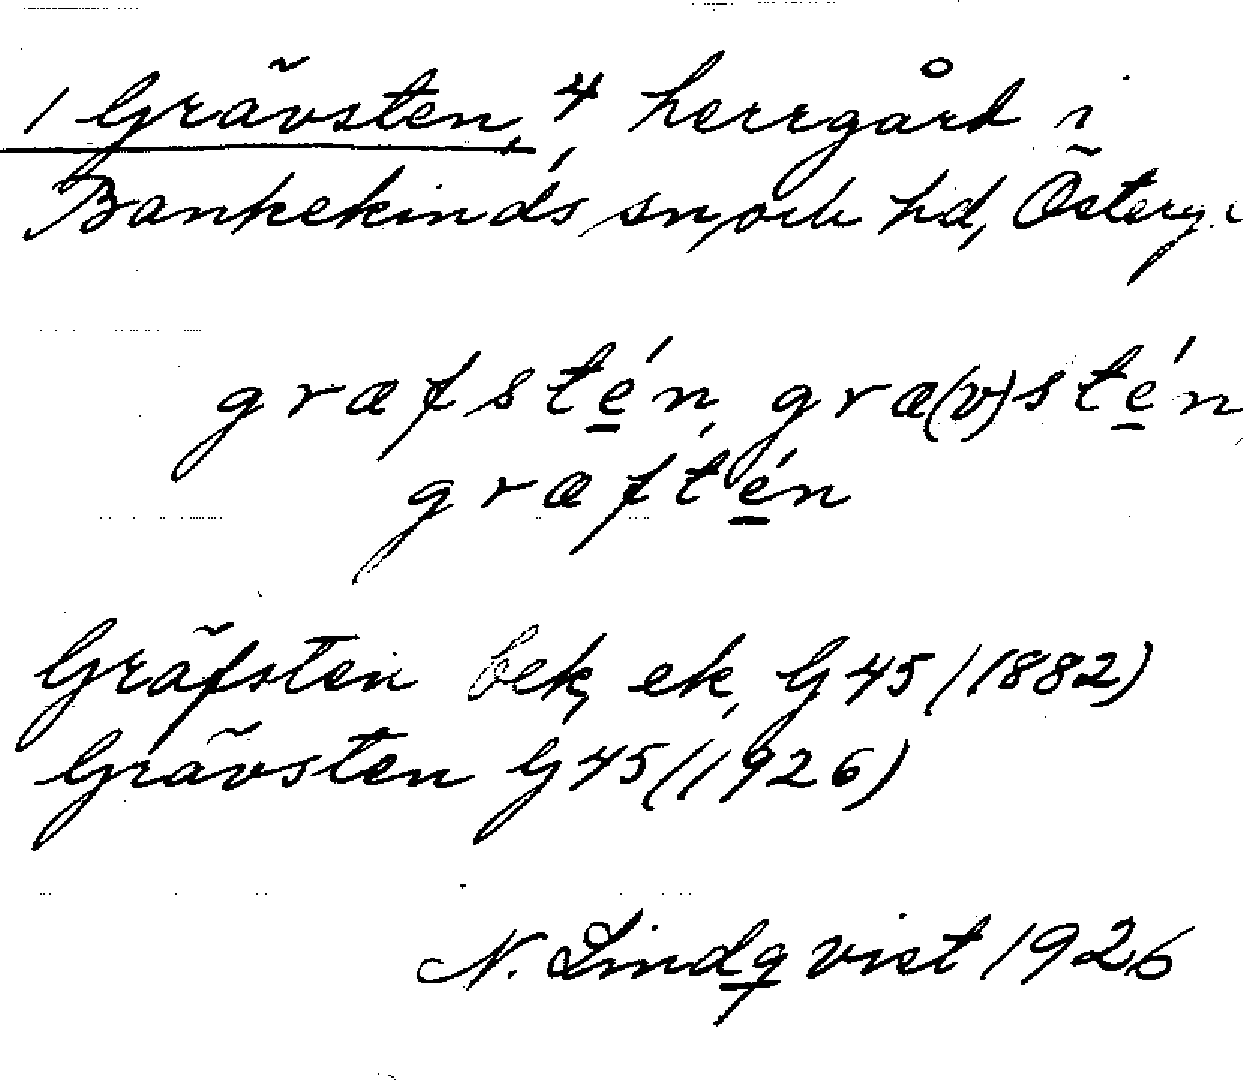 1 Grävsten, 4 herrgård i
Bankekinds sn, och hd, Österg.
græfsté̲n, græ(v)sté̲n,
græfté̲n
Gräfsten bek, ek, G 45 (1882)
Grävsten G 45 (1926)
N. Lindqvist 1926